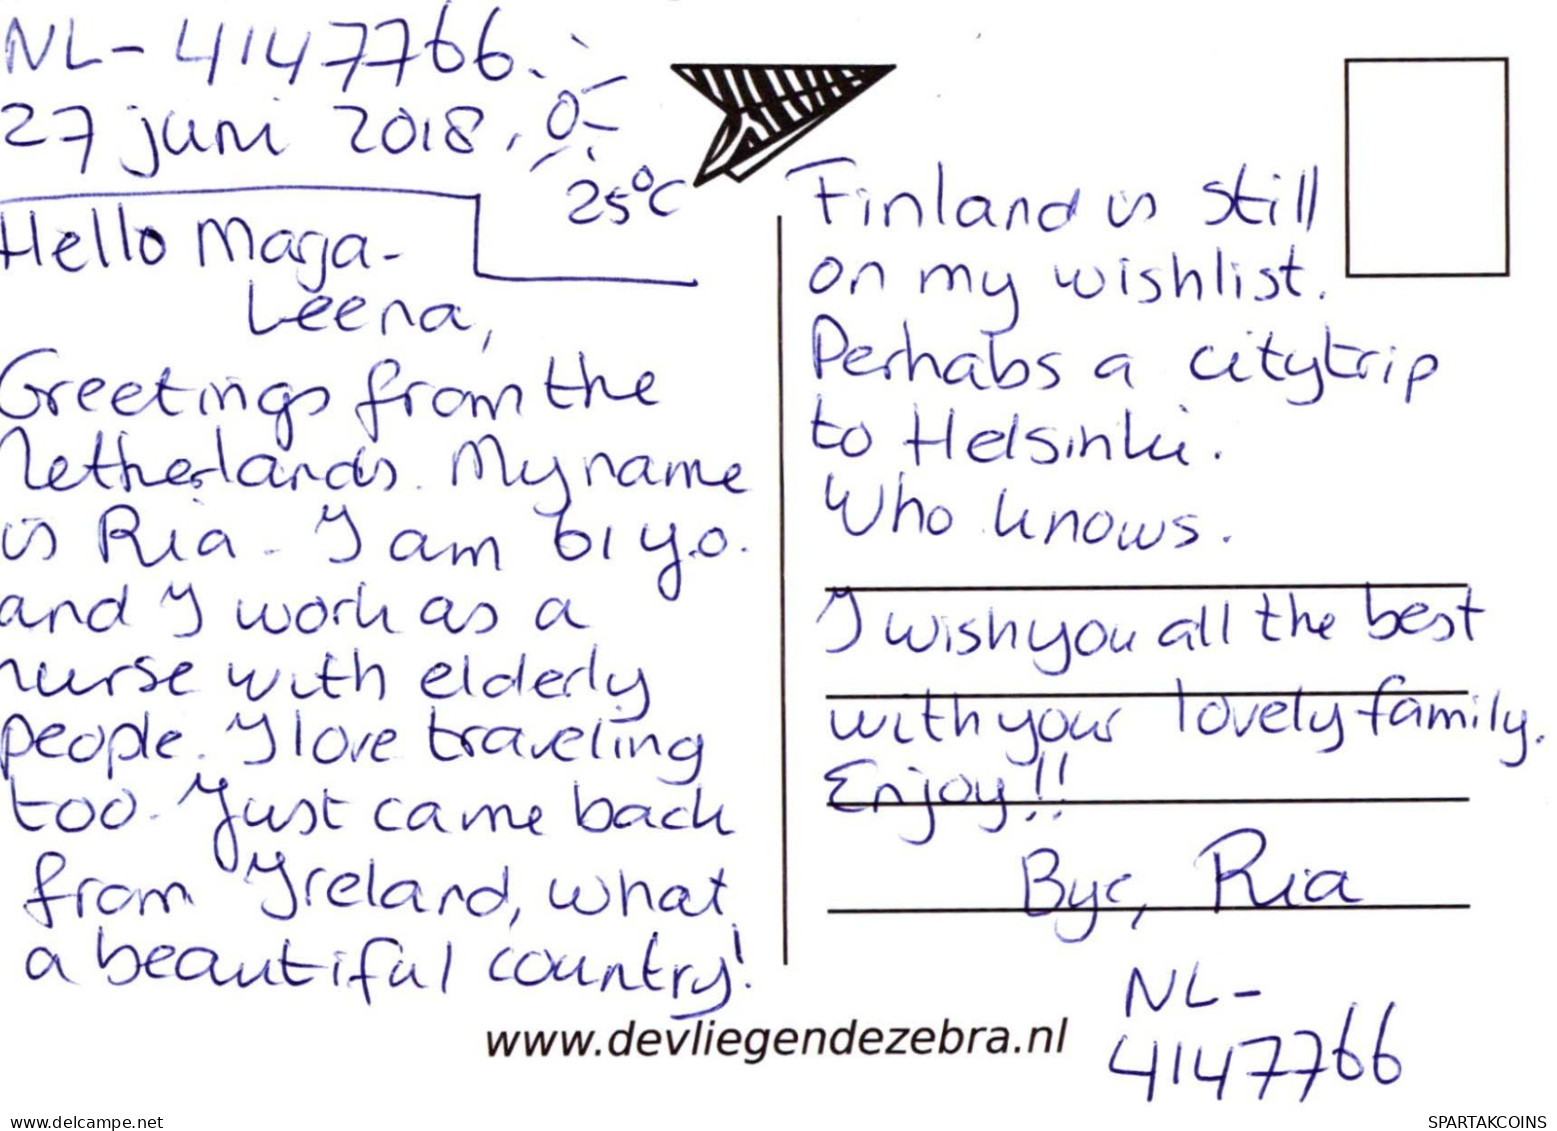 NL-4147766.
27 juni 2018.
25°C
Hello Marja-
Leena,
Greetings from the
Netherlands. My name
is Ria. I am 61 y.o.
and I work as a
nurse with elderly
people. I love traveling
too. Just came back
from Ireland, what
a beautiful country!
Finland is still
on my wishlist.
Perhabs a citytrip
to Helsinki.
Who knows.
I wish you all the best
with your lovely family.
Enjoy!!
Bye, Ria
NL-
4147766
www.devliegendezebra.nl
www.delcampe.net
SPARTAKCOINS